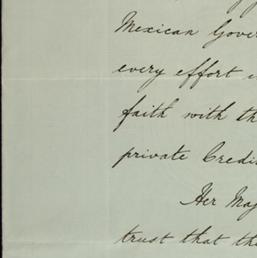 Mexican Gover
every effort
faith with th
private Credi
Her Maj
trust that the